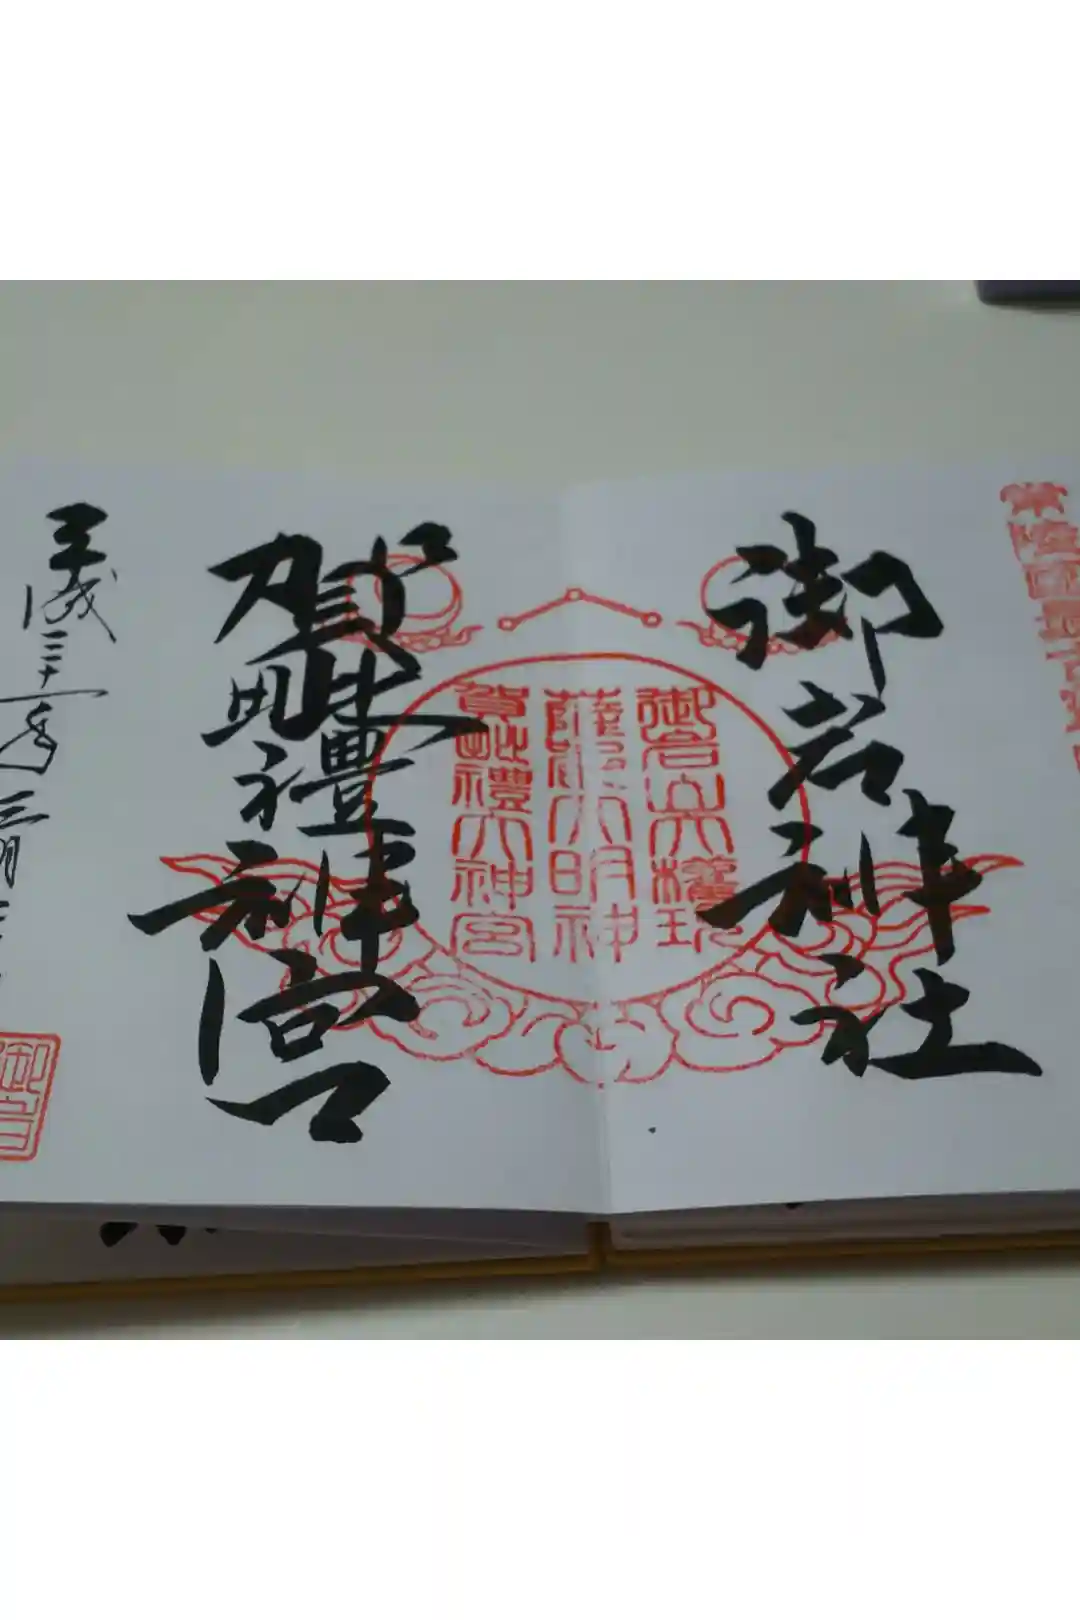 常陸國最古
御岩神社
御岩山大權現
薩都大明神
賀毗禮大神宮
賀毗禮神宮
平成三十一年三月
御岩